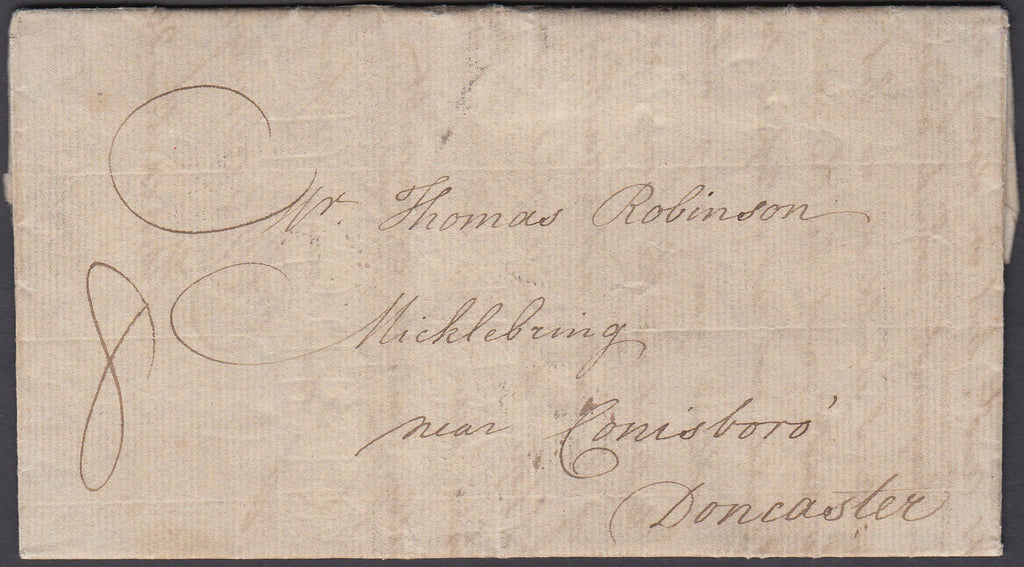 Mr. Thomas Robinson
8
Micklebring
near Conisboro'
Doncaster